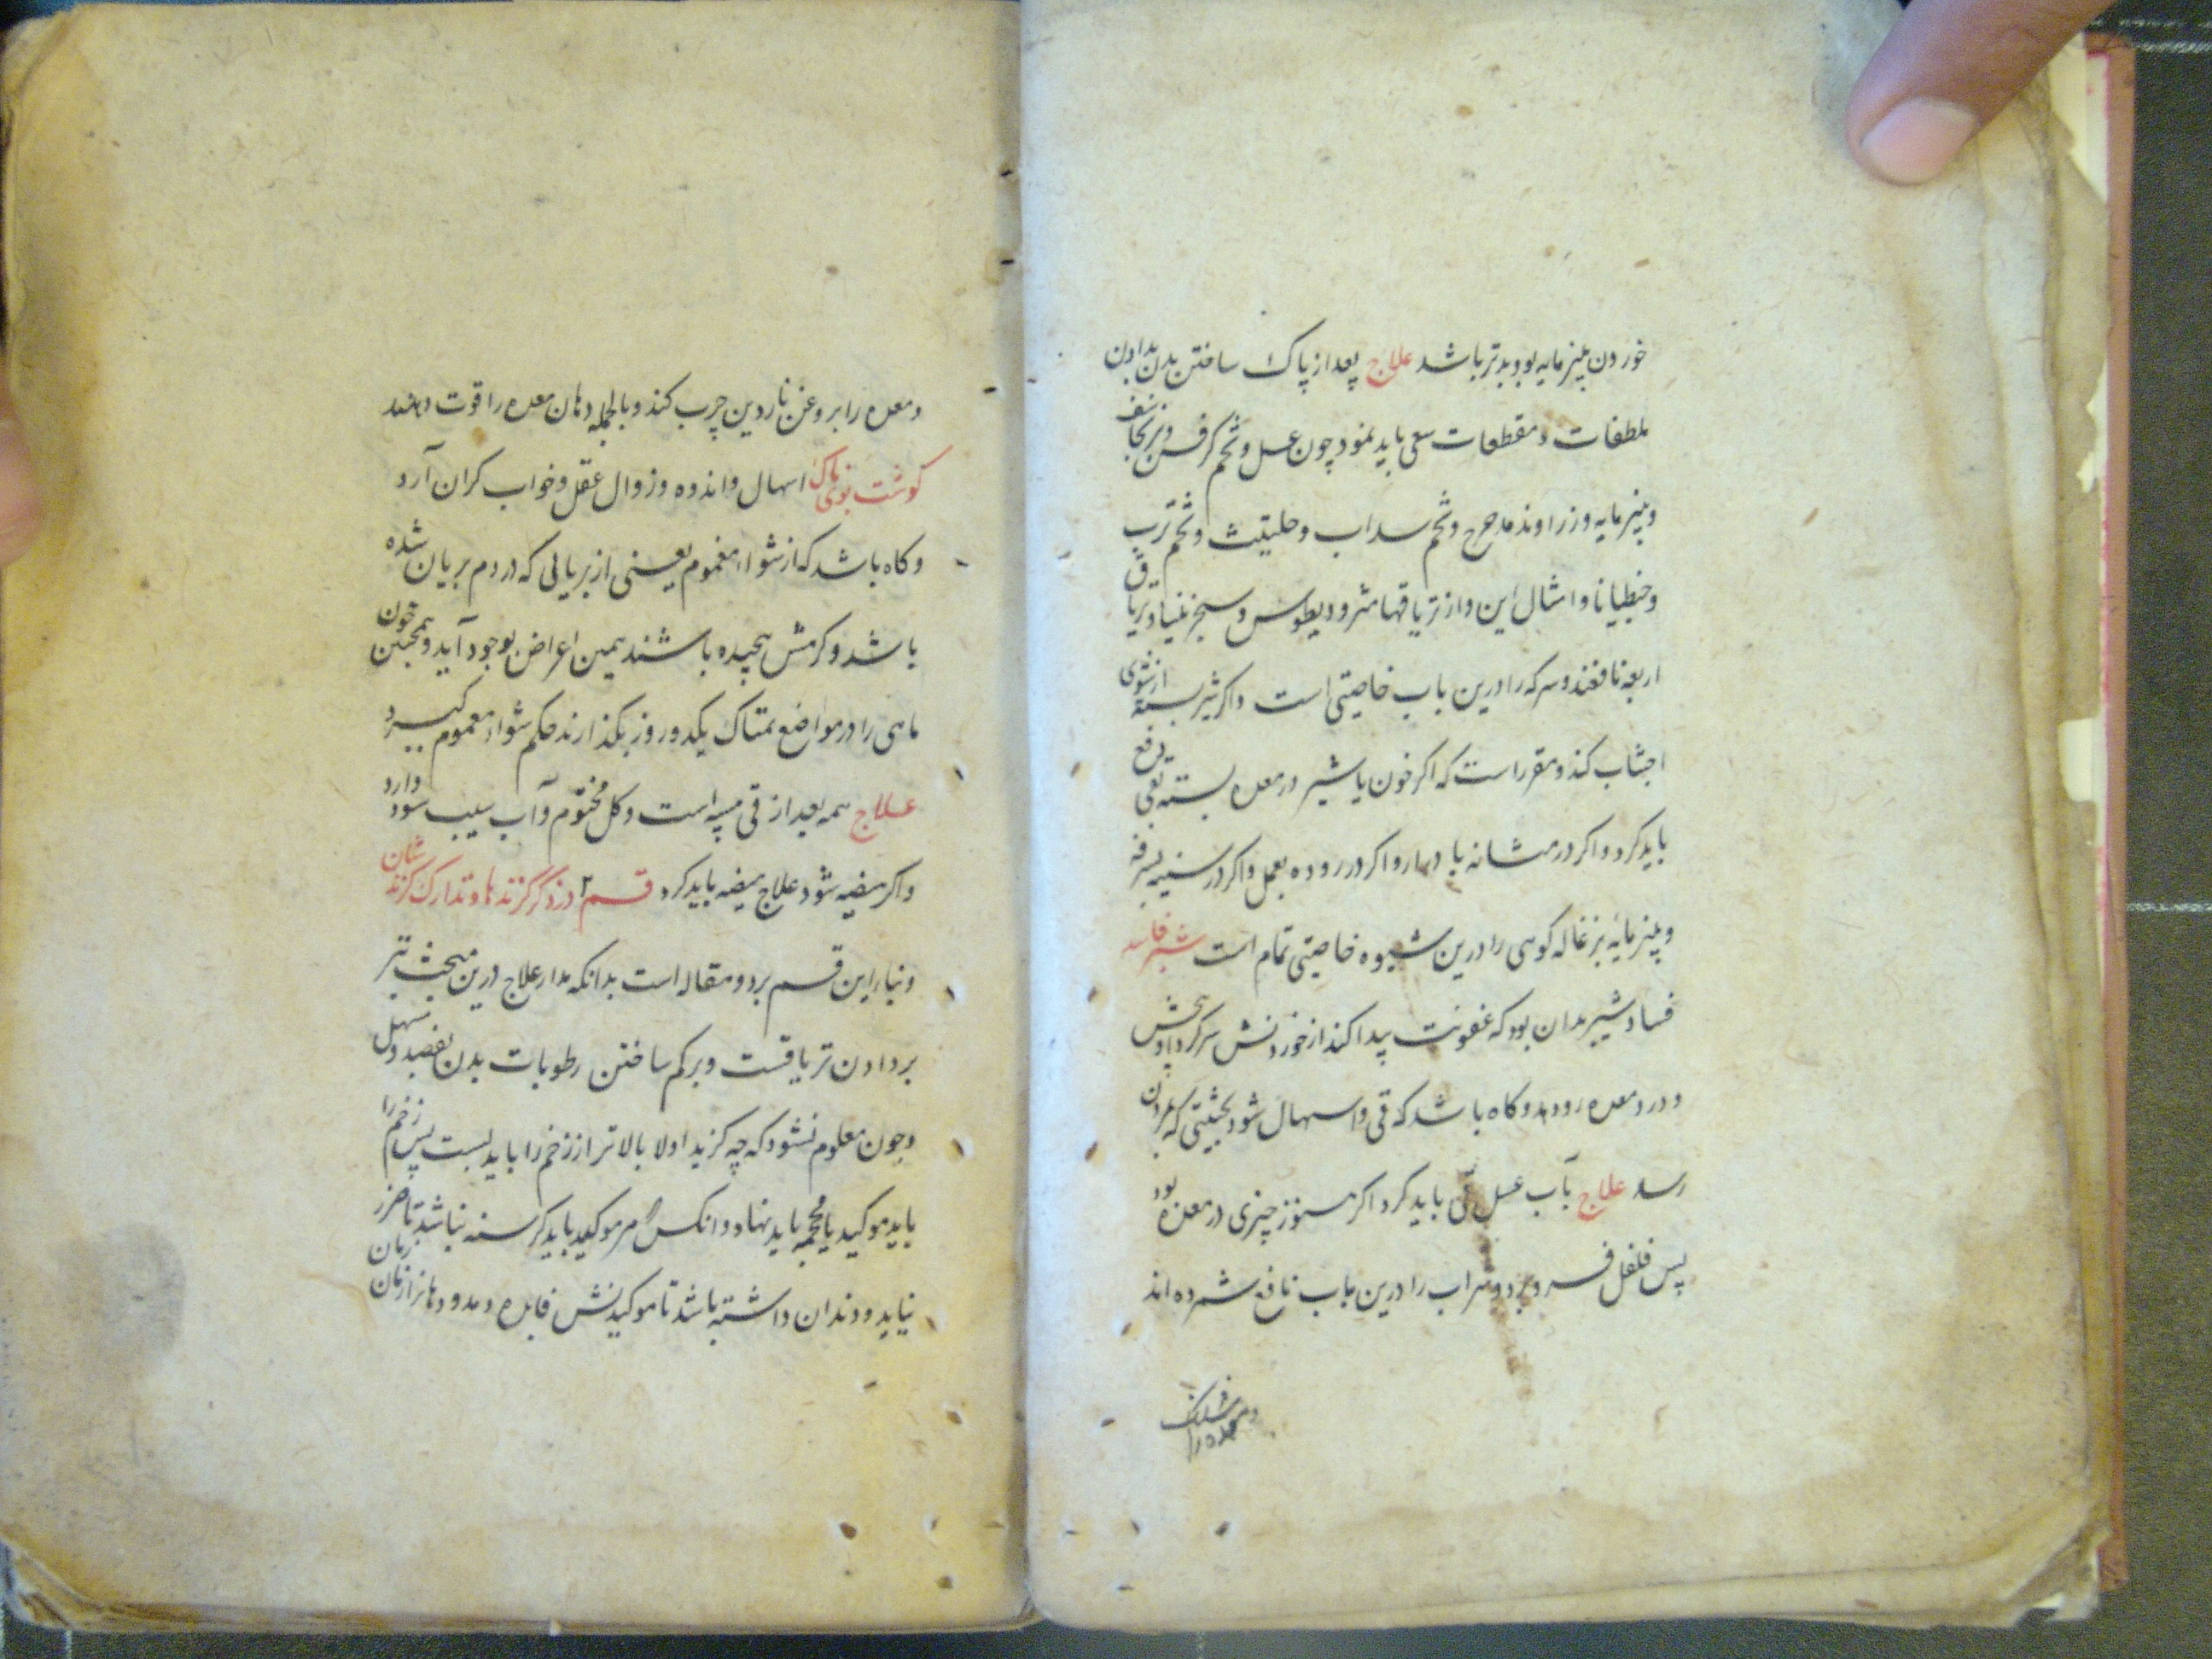 خوردن پنیرمایه بود بدتر باشد علاج بعد از پاک ساختن بدن بدادن
ملطفات و مقطعات سعی باید نمود چون عسل و تخم کرفس و برنجاسف
و پنیرمایه و زراوند مدحرج و تخم سداب و حلتیت و تخم ترب
و جنطیانا و امثال این و از تریاقها مثرودیطوس و سجزنییا و تریاق
اربعه نافعند و سرکه را درین باب خاصیتی است و اگر شیر بسته
اجتناب کند و مقرر است که اکر خون یا شیر در معده بسته بقی دفع
باید کرد و اکر در مثانه بادرار و اکر در روده بعمل و اکر در سینه بسرفه
و پنیرمایه بزغاله کوهی را درین شیوه خاصیتی تمام است شیر فاسد
فساد شیر بدان بود که عفونت پیدا کند از خوردنش سرکردان و پیچش
و درد معده رو دهد و کاه باشد که قی و اسهال شود بحیثیتی که بمردن
رسد علاج بآب عسل قی باید کرد اکر هنوز چیزی در معده بود
پس فلفل فرو برد و شراب را درین باب نافع شمرده اند
و معده را
و معده را بروغن ناردین چرب کند و بالجمله دهان معده را قوت دهند
کوشت بوی ناک اسهال و اندوه و زوال عقل و خواب کران آرد
و کاه باشد که از شواء مغموم یعنی از بریانی که در دم بریان شده
باشد و کرمش پیچیده باشند همین اعراض بوجود آید و همچنین چون
ماهی را در مواضع نمناک یکدو روز بکذارند حکم شواء مغموم کیرد
علاج همه بعد از قی میبه است و کل مختوم و آب سیب سود دارد
و اکر هیضه شود علاج هیضه باید کرد قسم ۲ در ذکر کزندها و تدارک کزند شان
و بناء این قسم بر دو مقاله است بدانکه مدار علاج درین مبحث نیز
بر دادن تریاقست و بر کم ساختن رطوبات بدن بفصد و مسهل
و چون معلوم نشود که چه کزید اولا بالاتر از زخم را باید بست پس زخم را
باید موکید یا محجمه باید نهاد و انکس که مر موکید باید کرسنه نباشد تا ضرر
نیابد و دندان داشته باشد تا موکیدنش فایده دهد و دهانرا از زمان